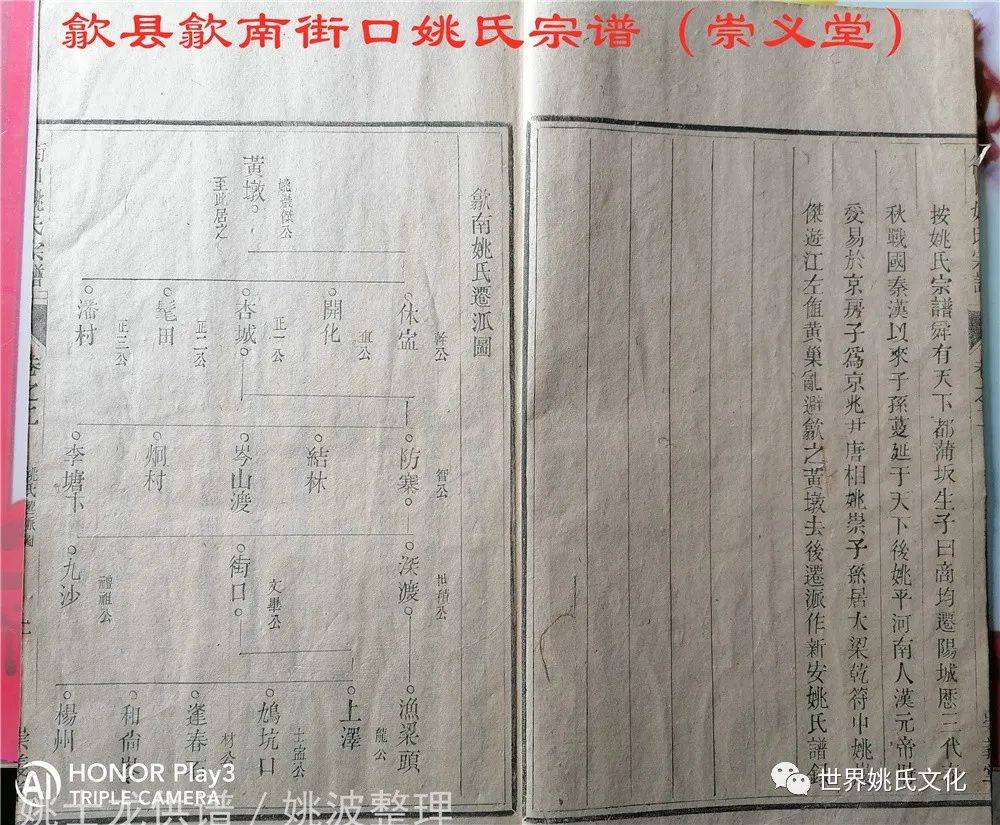 歙县歙南街口姚氏宗谱（崇义堂）
按姚氏宗譜舜有天下都蒲坂生子曰商均遷陽城歷三代
秋戰國秦漢以來子孫蔓延于天下後姚平河南人漢元帝
受易於京房子為京兆尹唐相姚崇子孫居大梁乾符中姚
傑遊江左值黃巢亂避歙之黃墩去後遷派作新安姚氏譜
歙南姚氏遷派圖
黃墩
姚巖傑公
至此居之
休寍
幹公
開化
直公
杏城
正一公
髦田
正二公
潘村
正三公
防寨
智公
結林
岑山渡
烱村
李塘下
深渡
世積公
街口
文畢公
九沙
禮祖公
漁梁頭
龍公
上澤
鳩坑口
士寍公
逢春
材公
和尚
楊州
姚氏宗譜
HONOR Play3
TRIPLE CAMERA
世界姚氏文化
姚士龙供谱 / 姚波整理